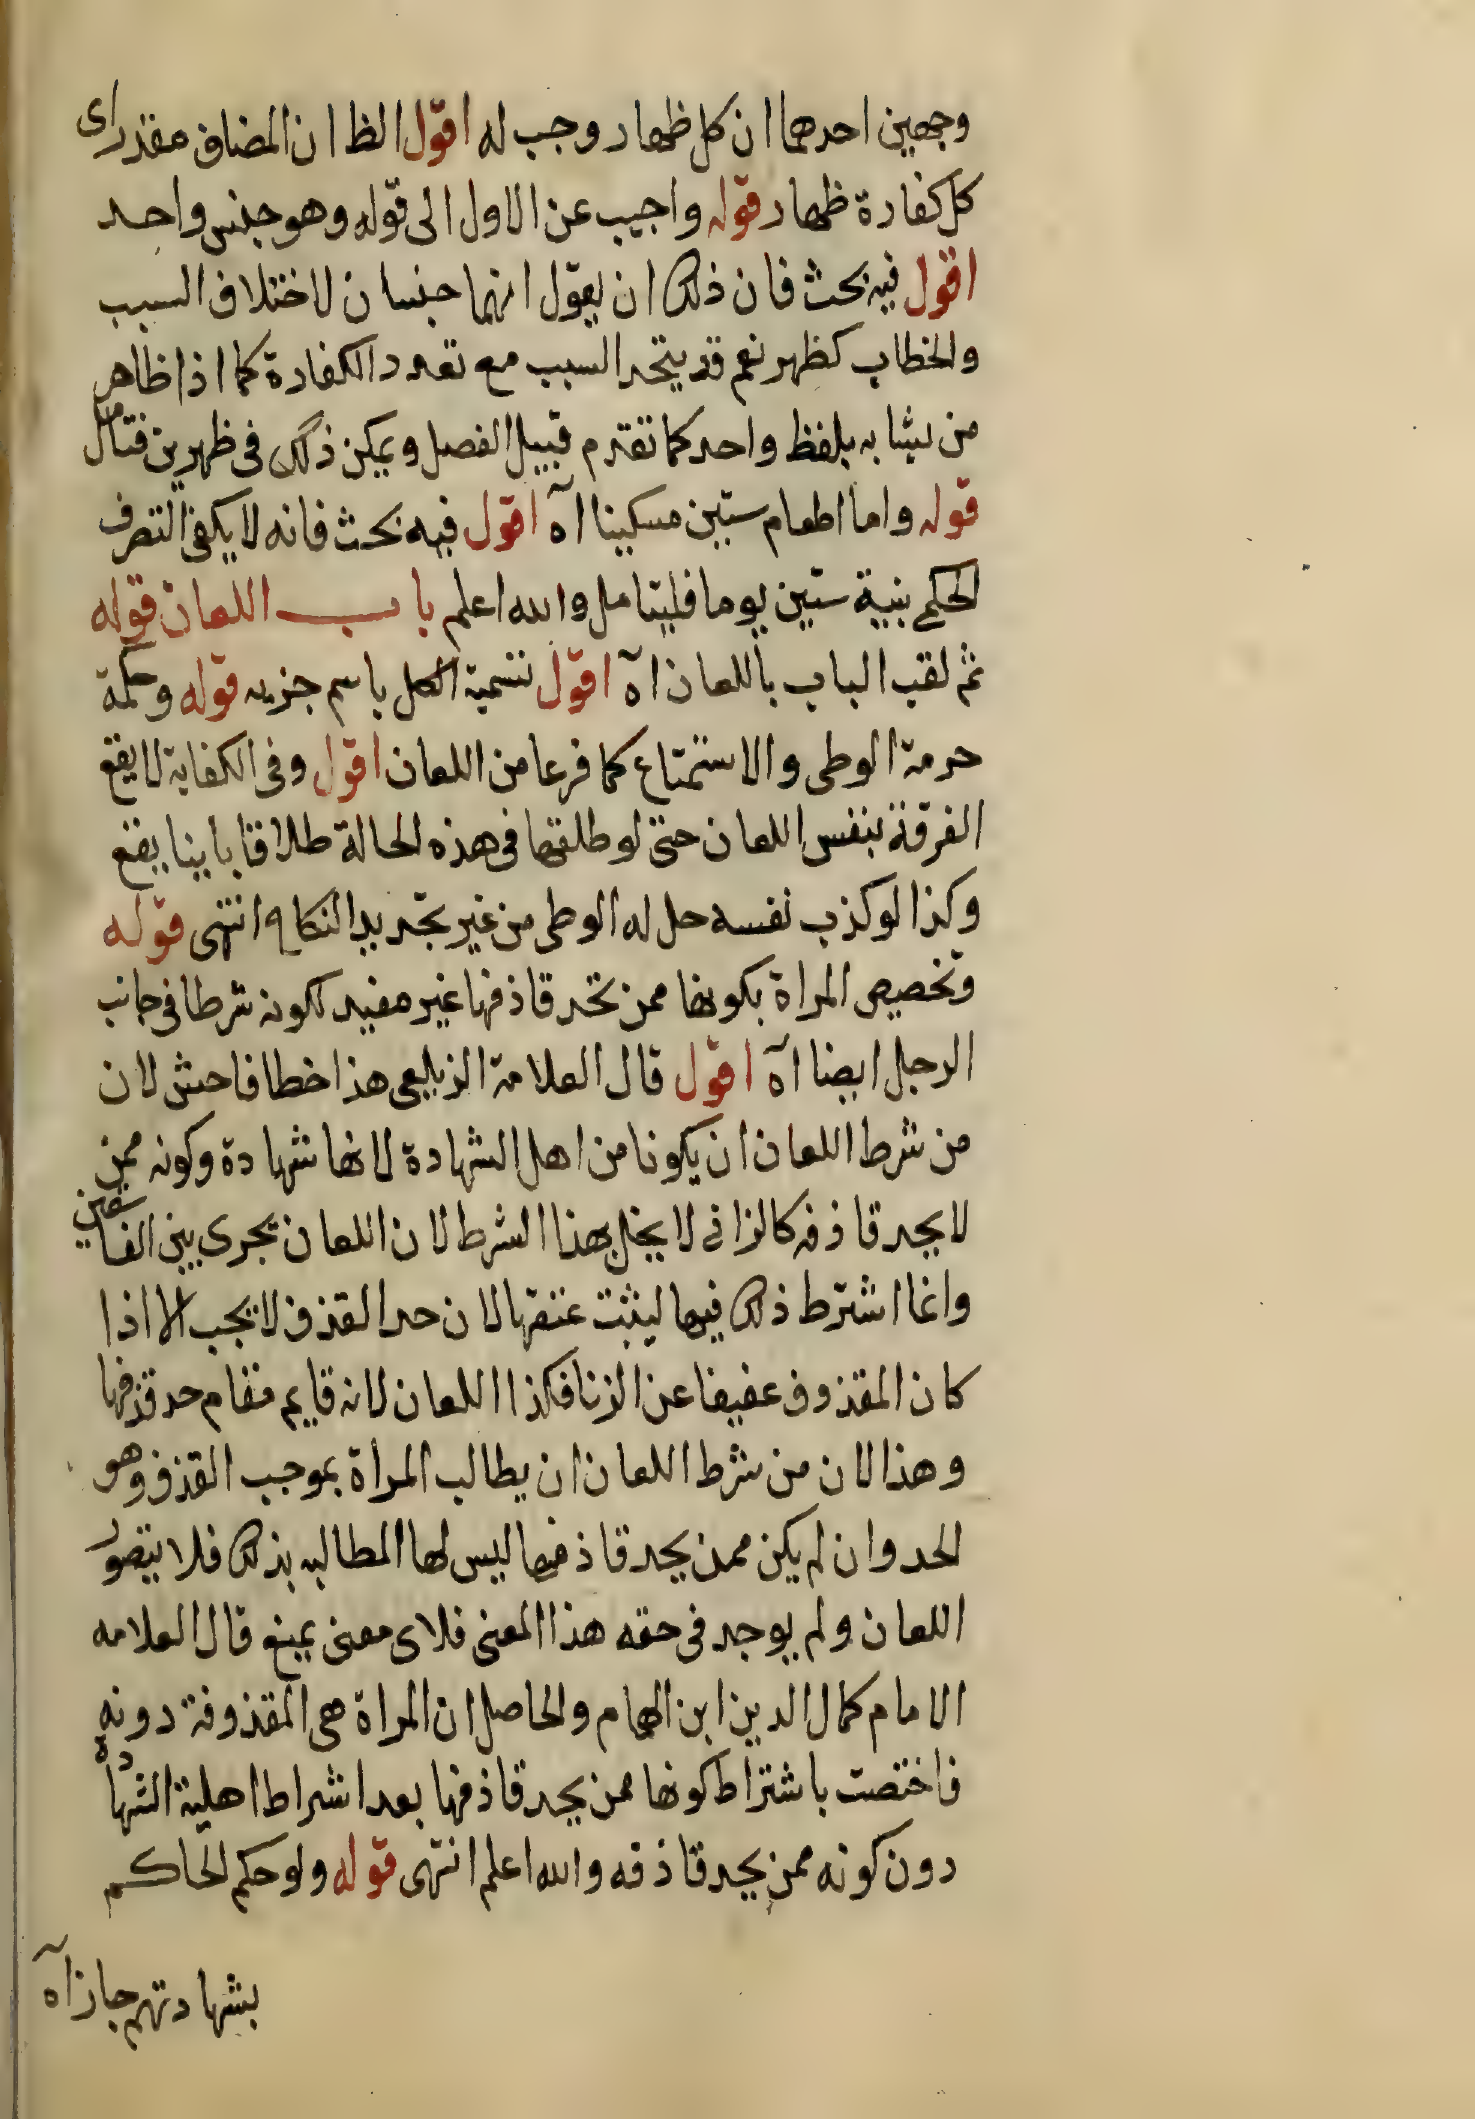 وجهين احدهما ان كل ظهار وجب له اقول الظ ان المضاف مقدر اى
كل كفارة ظهار قوله واجيب عن الاول الى قوله وهو جنس واحد
اقول فيه بحث فان ذلك ان يقول انهما جنسان لاختلاف السبب
والخطاب كظهر نعم قد يتحد السبب مع تعدد الكفارة كما اذا ظاهر
من نسايه بلفظ واحد كما تقدم قبيل الفصل ويمكن ذلك فى ظهرين فتامل
قوله واما اطعام ستين مسكينا اه اقول فيه بحث فانه لا يكفى التصرف
الحكمى بنية ستين يوما فليتامل والله اعلم باب اللعان قوله
ثم لقب الباب باللعان اه اقول تسمية الكل باسم جزيه قوله وحكمة
حرمة الوطى والاستمتاع كما فرعا من اللعان اقول وفى الكفاية لا يقع
الفرقة بنفس اللعان حتى لو طلقها فى هذه الحالة طلاقا باينا يقع
وكذا لو كذب نفسه حل له الوطى من غير تجديد النكاح انتهى قوله
وتخصيص المراة بكونها ممن تحد قاذفها غير مفيد لكونه شرطا فى جانب
الرجل ايضا اه اقول قال العلامة الزيلعى هذا خطا فاحش لان
من شرط اللعان ان يكونا من اهل الشهادة لانها شهادة وكونه ممن
لا يحد قاذفه كالزانى لا يخل بهذا الشرط لان اللعان تجرى بين الفاسقين
وانما اشترط ذلك فيها ليثبت عفتها لان حد القذف لا يجب الا اذا
كان المقذوف عفيفا عن الزنا فكذا اللعان لانه قايم مقام حد قذفها
وهذا لان من شرط اللعان ان يطالب المراة بموجب القذف وهو
الحد وان لم يكن ممن يحد قاذفها ليس لها المطالبه بذلك فلا يتصور
اللعان ولم يوجد فى حقه هذا المعنى فلاى معنى يمنع قال العلامه
الامام كمال الدين ابن الهمام والحاصل ان المراة هى المقذوفة دونه
فاختصت باشتراط كونها ممن يحد قاذفها بعد اشراط اهلية الشهادة
دون كونه ممن يحد قاذفه والله اعلم انتهى قوله ولو حكم الحاكم
بشهادتهم جاز اه